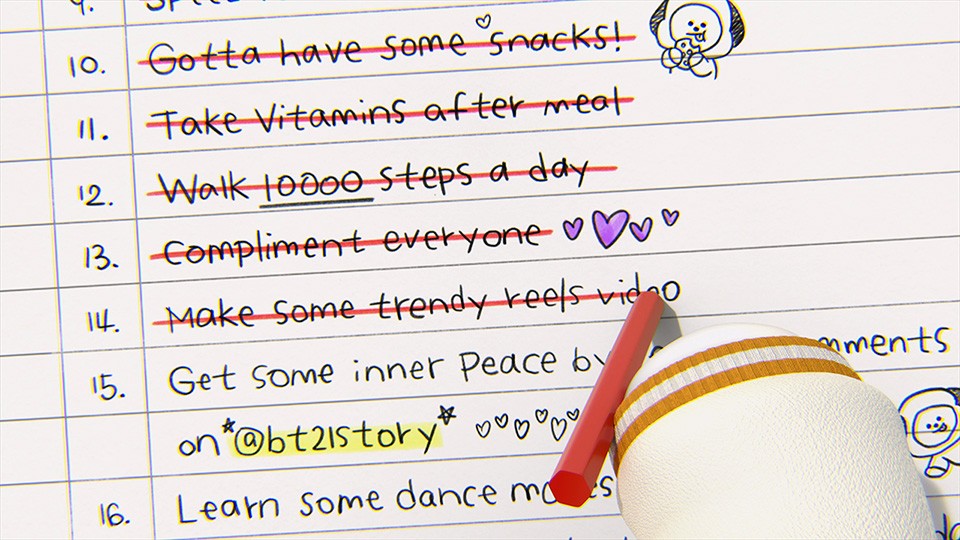 9.
10. Gotta have some snacks!
11. Take Vitamins after meal
12. Walk 10000 steps a day
13. Compliment everyone
14. Make some trendy reels video
15. Get some inner Peace by
on *@bt21story*
16. Learn some dance moves